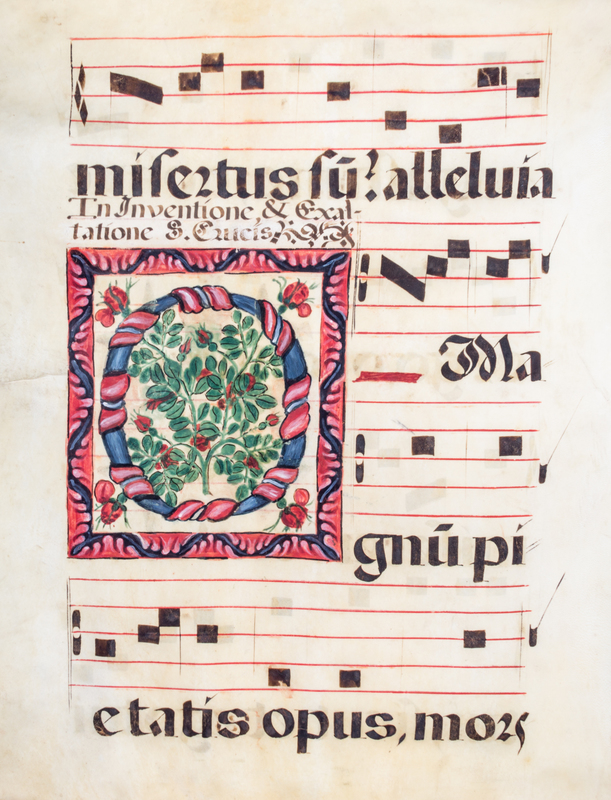 miſertus ſū? alleluia
In Inventione, & Exal-
tatione S. Crucis
O Ma
gnū pi
etatis opus, mors